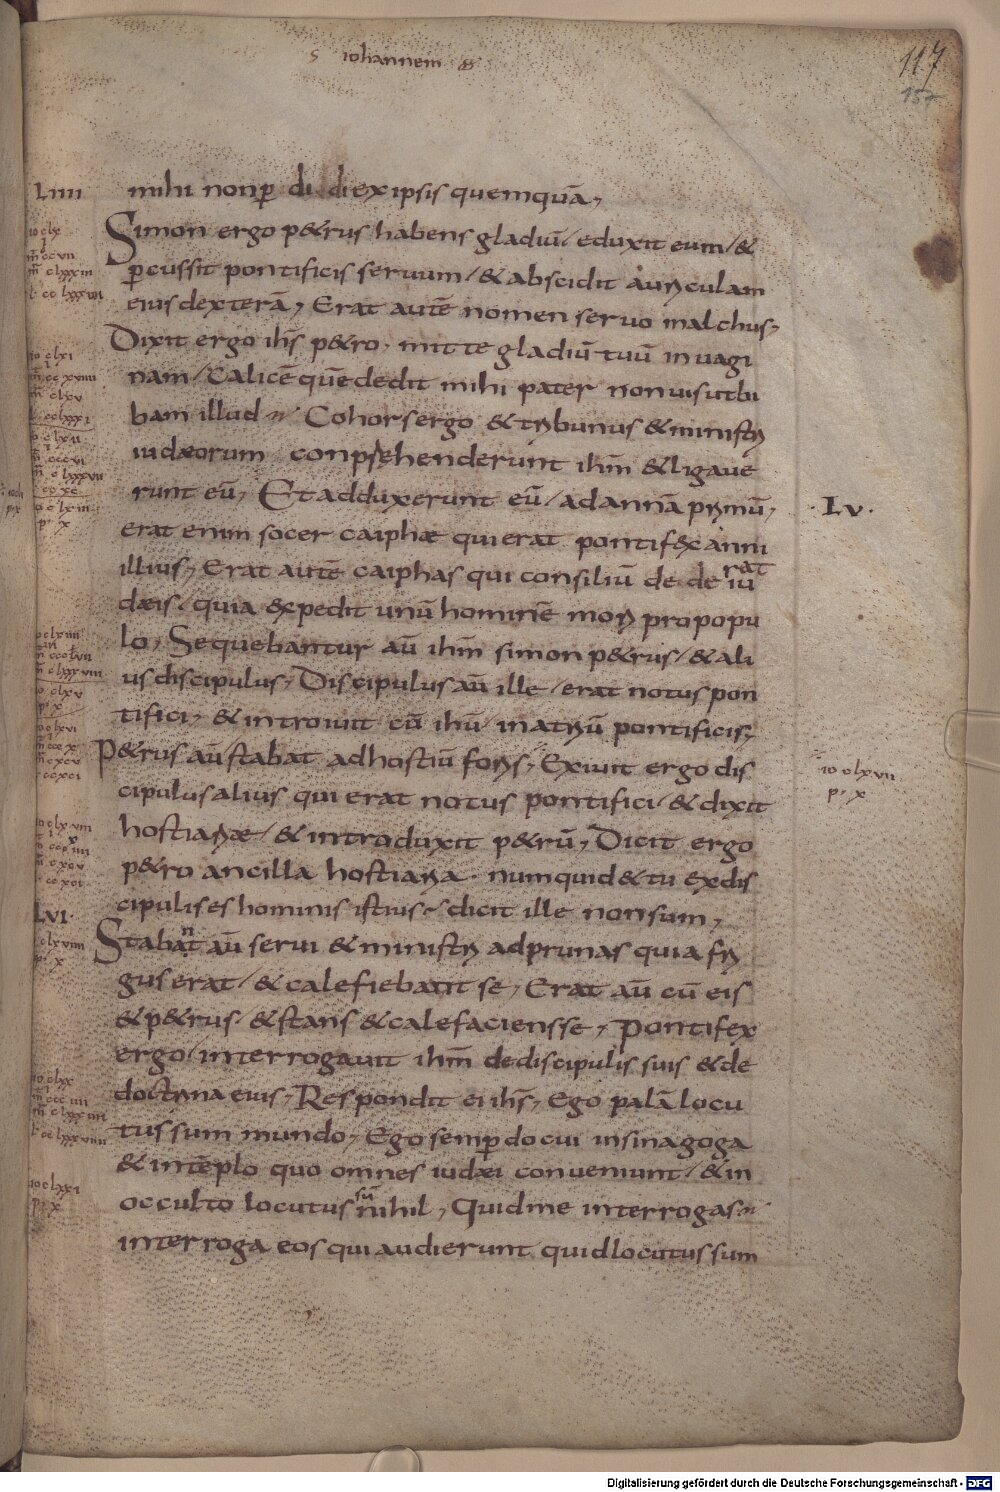 s iohannem
117
157
LIIII mihi nonp di di ex ipsis quemquā,
Simon ergo p&rus habens gladiū / eduxit eum / &
pcussit pontificis seruum / & abscidit auriculam
eius dexterā, Erat autē nomen seruo malchus,
Dixit ergo ih̄s p&ro. mitte gladiū tuū in uagi
nam / Calicē quē dedit mihi pater non uis ut bi
bam illud Cohors ergo & tribunus & ministri
iudæorum conprehenderunt ih̄m & ligaue
runt eū, Et adduxerunt eū / ad annā primū, · Lv ·
erat enim socer caiphæ qui erat pontifex anni
illius, Erat autē caiphas qui consiliū de de rat iu
dæis. quia expedit unū hominē mori pro popu
lo, Sequebantur aū ih̄m simon p&rus / & ali
us discipulus, Discipulus aū ille / erat notus pon
tifici, & introiuit cū ih̄u in atriū pontificis,
P&rus aū stabat ad hostiū foris, Exiuit ergo dis
cipulus alius qui erat notus pontifici / & dixit
io clxvii
hostiariæ / & introduxit p&rū, Dicit ergo
p&ro ancilla hostiaria. numquid & tu ex dis
cipulis es hominis istius dicit ille non sum,
LVI· Stabant aū serui & ministri ad prunas quia fri
gus erat / & calefiebant se, Erat aū cū eis
& p&rus & stans & calefaciens se, Pontifex
ergo / interrogauit ih̄m de discipulis suis & de
doctrina eius, Respondit ei ih̄s, Ego palā locu
tus sum mundo, Ego semp docui in sinagoga
& in tēplo quo omnes iudæi conueniunt / & in
occulto locutus sū nihil, Quid me interrogas
interroga eos qui audierunt quid locutus sum
Digitalisierung gefördert durch die Deutsche Forschungsgemeinschaft - DFG